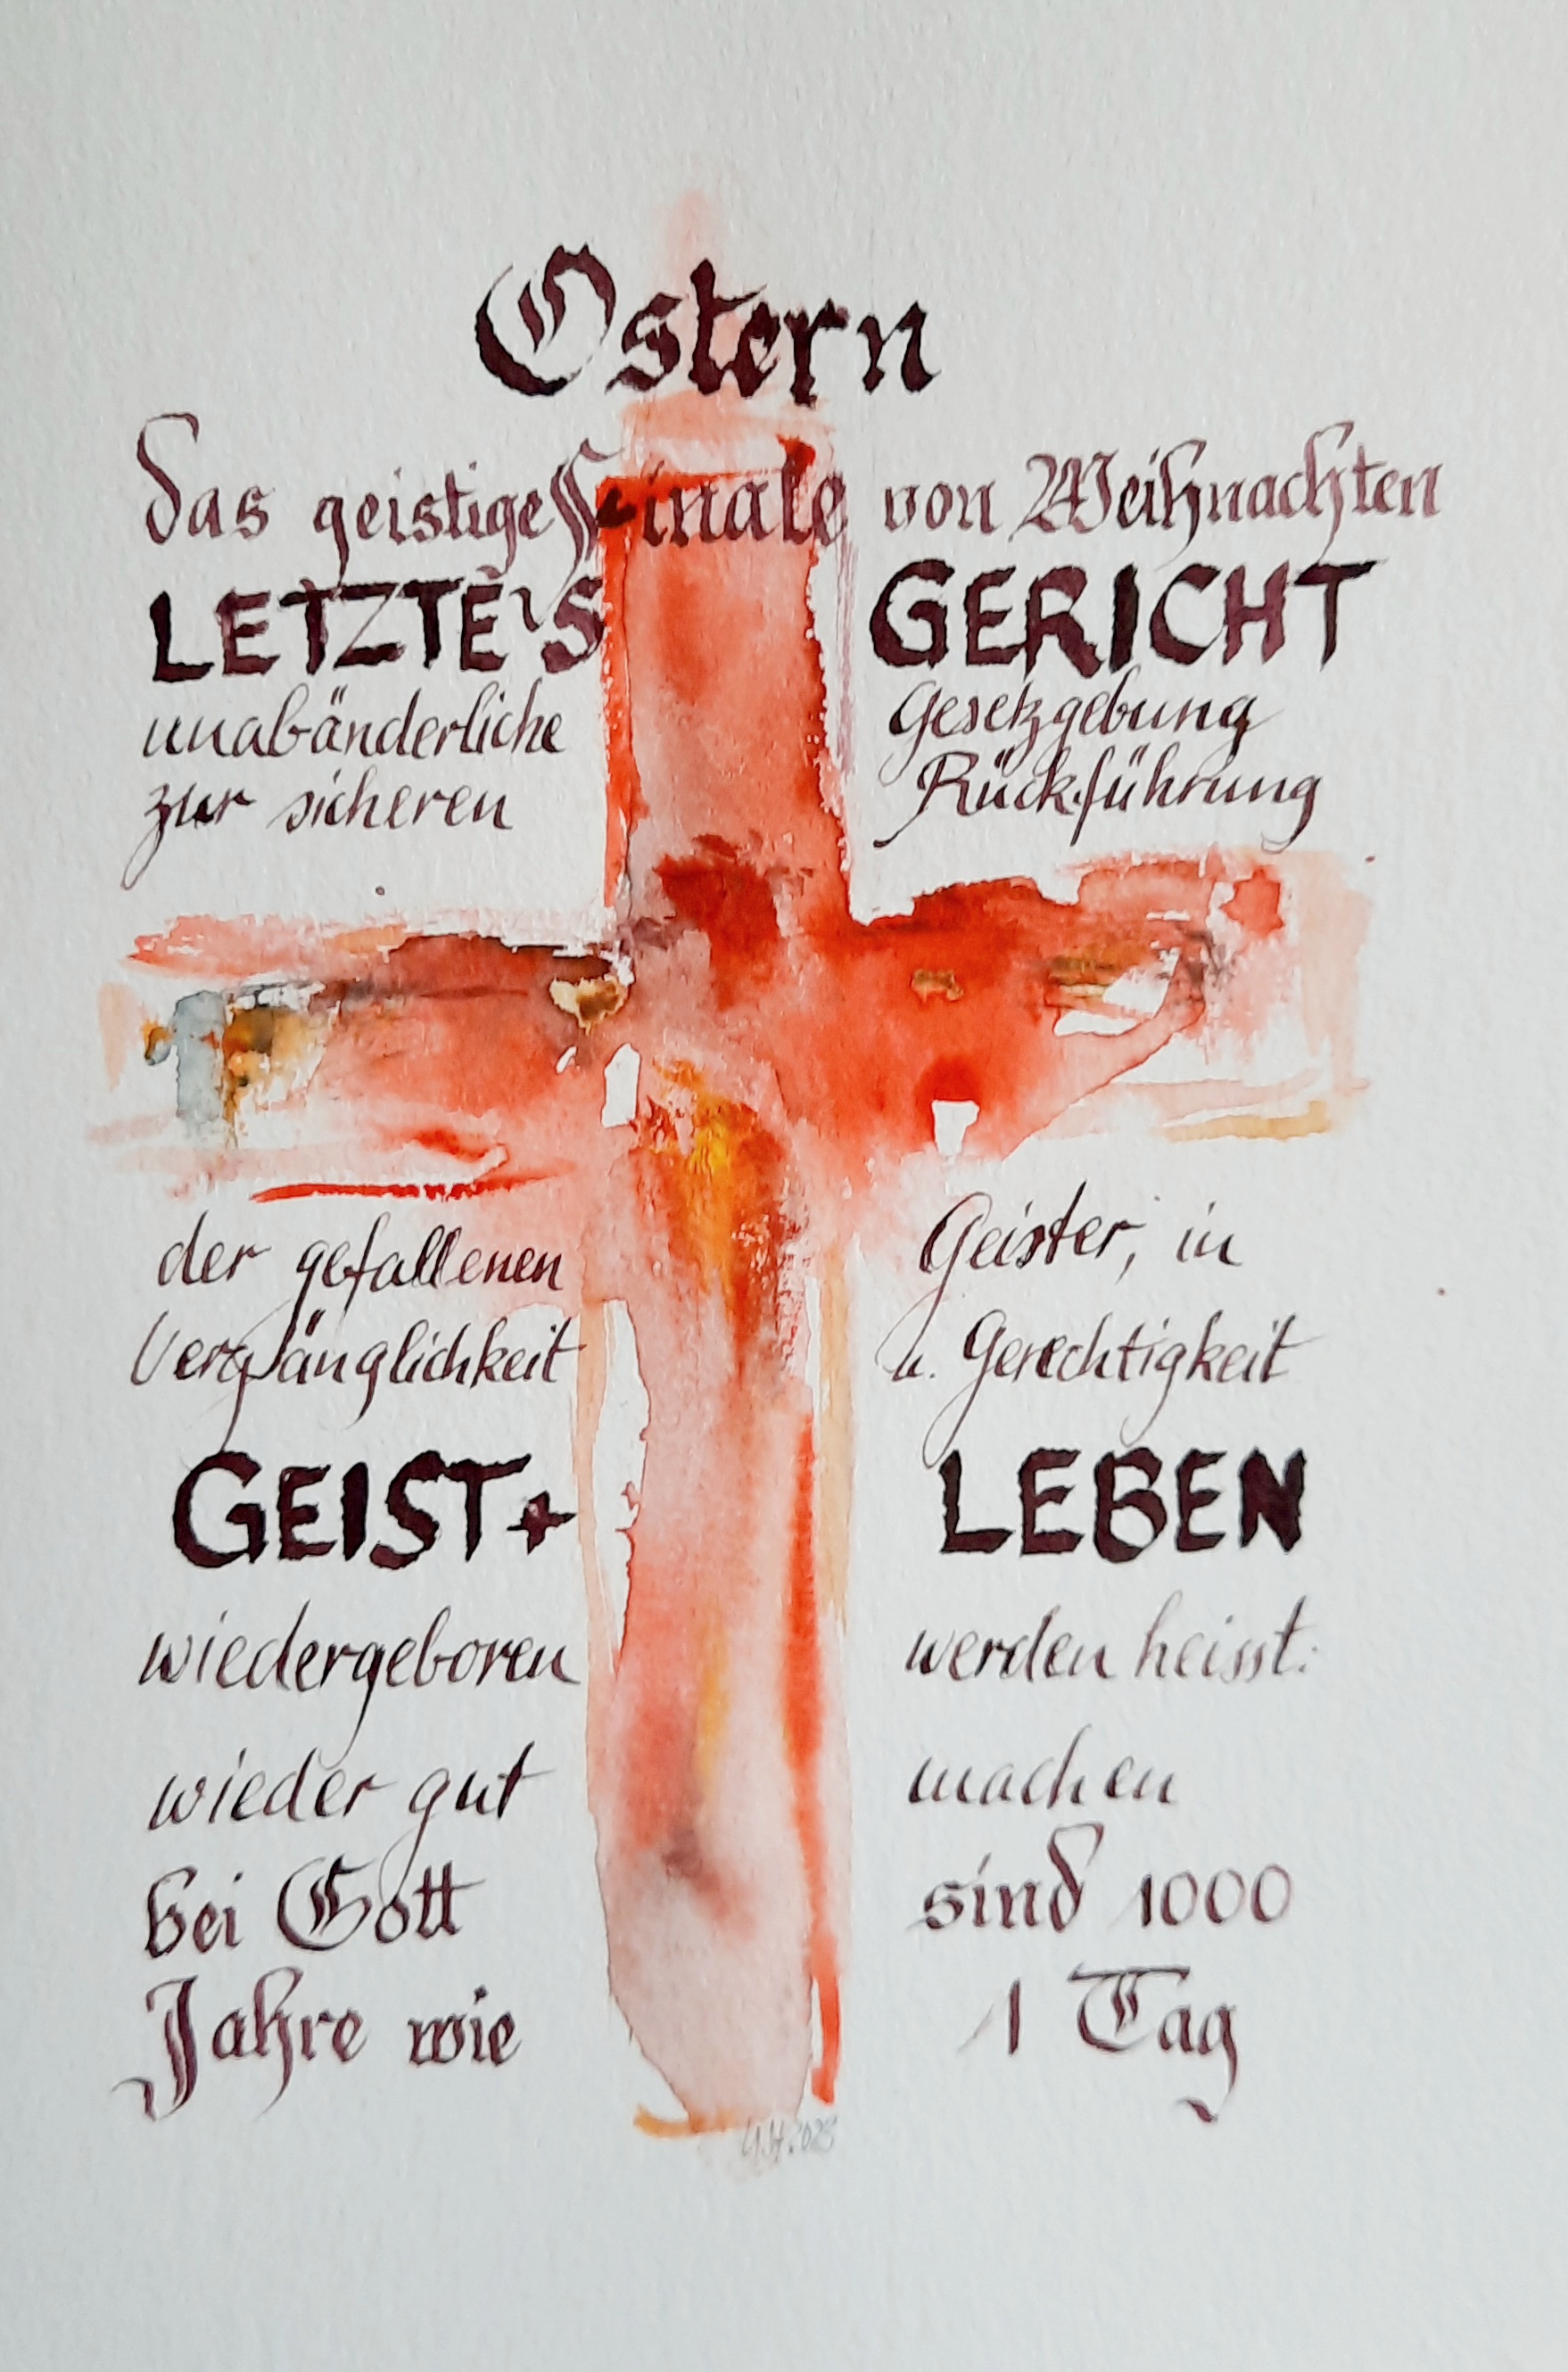 Ostern
das geistige Finale von Weihnachten
LETZTE'S GERICHT
unabänderliche Gesetzgebung
zur sicheren Rückführung
der gefallenen Geister, in
Vergänglichkeit u. Gerechtigkeit
GEIST+ LEBEN
wiedergeboren werden heisst:
wieder gut machen
bei Gott sind 1000
Jahre wie 1 Tag